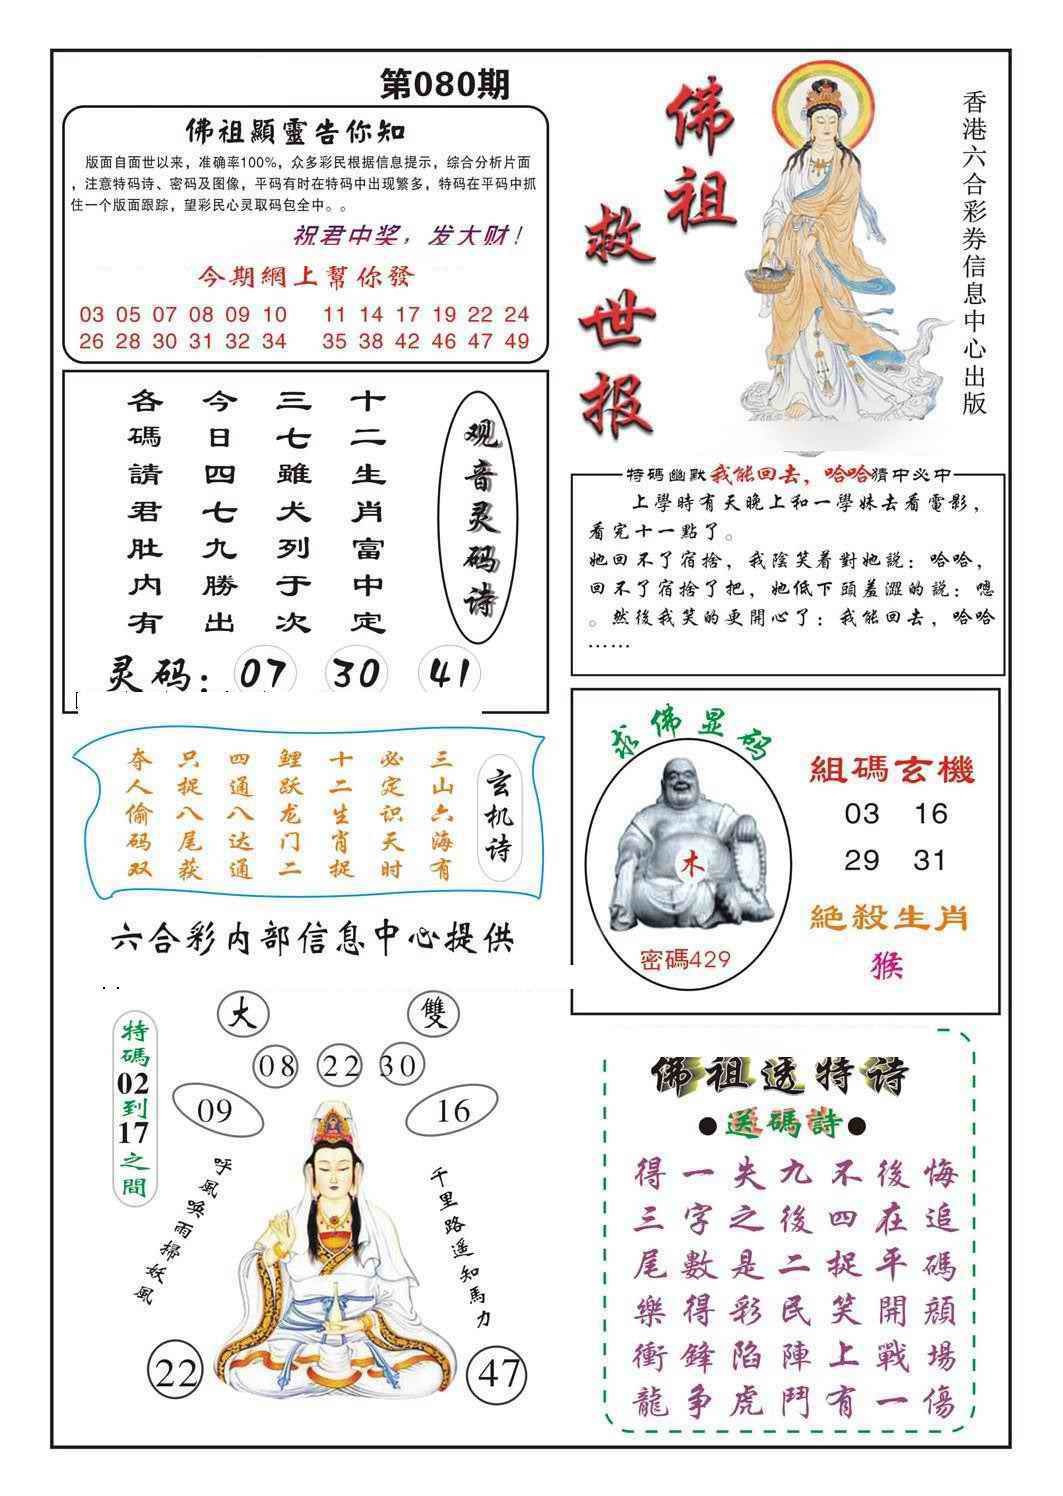 第080期
佛祖顯靈告你知
版面自面世以来，准确率100%，众多彩民根据信息提示，综合分析片面
，注意特码诗、密码及图像，平码有时在特码中出现繁多，特码在平码中抓
住一个版面跟踪，望彩民心灵取码包全中。。
祝君中奖，发大财！
今期網上幫你發
03 05 07 08 09 10 11 14 17 19 22 24
26 28 30 31 32 34 35 38 42 46 47 49
佛祖
救世报
香港六合彩券信息中心出版
观音灵码诗
十二生肖富中定
三七雖犬列于次
今日四七九勝出
各碼請君肚内有
灵码：07 30 41
特码幽默我能回去，哈哈猜中必中
上學時有天晚上和一學妹去看電影，
看完十一點了。
她回不了宿捨，我陰笑着對她説：哈哈，
回不了宿捨了把，她低下頭羞澀的説：嗯
。然後我笑的更開心了：我能回去，哈哈
……
玄机诗
三山六海有
必定识天时
十二生肖捉
鲤跃龙门二
四通八达通
只捉八尾获
夺人偷码双
六合彩内部信息中心提供
求佛显码
木
密碼429
組碼玄機
03 16
29 31
絕殺生肖
猴
特碼02到17之間
大 雙
08 22 30
09 16
呼風喚雨掃妖風
千里路遥知馬力
22 47
佛祖透特诗
●送碼詩●
得一失九不後悔
三字之後四在追
尾數是二捉平碼
樂得彩民笑開顔
衝鋒陷陣上戰場
龍争虎鬥有一傷